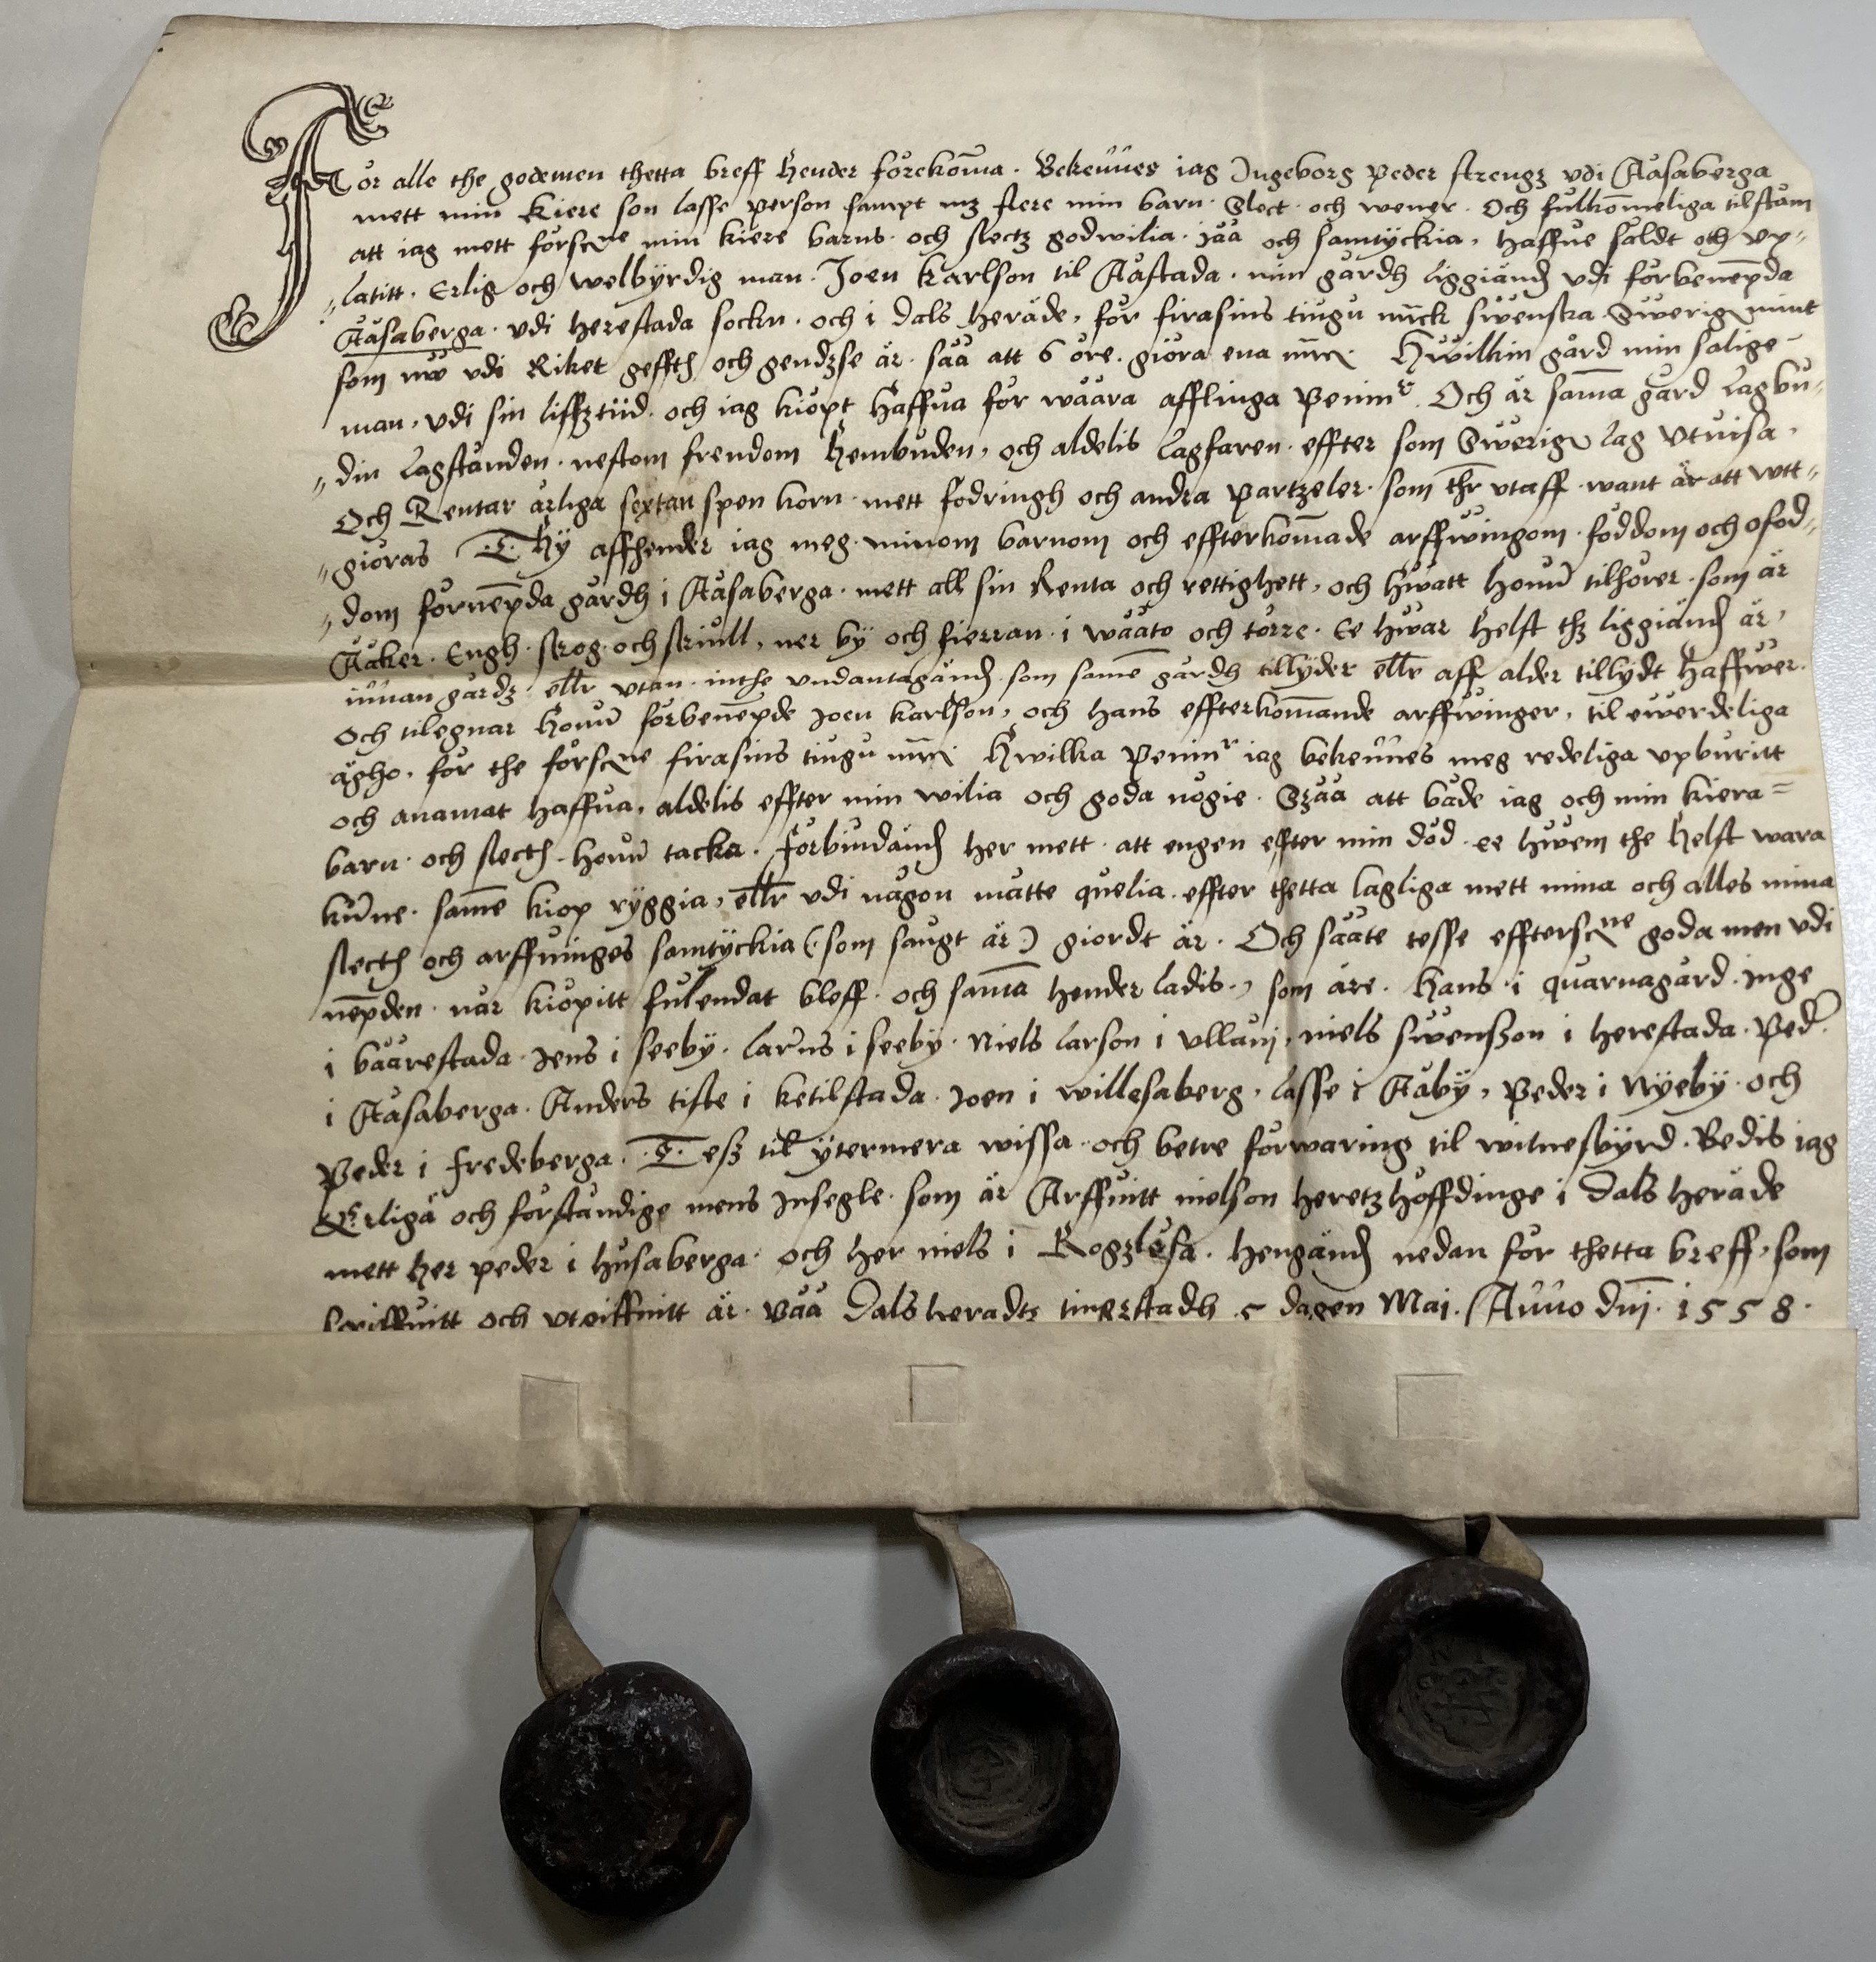 För alle the godemen thetta breff hender förekom̄a. Bekennes iag Ingeborg peder strengz vdi Aasaberga
mett min kiere son lasse person sampt mz flere min barn. Slect. och wener. Och fulkom̄eliga tilstam
att iag mett förscne min kiere barns. och slectz godwilia. jaa och samtyckia, haffue saldt och vp„
„latitt. Erlig och welbyrdig man. Joen Karlson til Aastada. min gårdh liggiandh vdi förbenēpda
Aasaberga. vdi herestada sockn. och i Dals heräde, för firasins tiugu mrck swenska Swerigis mint
som nw vdi Riket geffth och gendzse är. saa att 6 öre. giöra ena mrc. Hwilkin gård min salige-
man, vdi sin liffztiid. och iag kiöpt haffua för waara afflinga Peninr. Och är sam̄a gård Lagbu„
„din Lagstanden. nestom frendom hembuden, och aldelis Lagfaren. effter som Swerigis Lag vtuisa,
Och Rentar årliga sextan spen korn. mett fodringh och andra partzeler. som thr vtaff. want är att wtt„
„giöras. Thy affhender iag meg. minom barnom och effterkom̄ade arffwingom. föddom och oföd„
„dom förnēpda gårdh i Aasaberga. mett all sin Renta och rettighett, och hwatt honū tilhörer. som är
Aaker. Engh. skog. och skiull, ner by och fierran. i waato och torre. Ee hwar helst thz liggiandh är,
innan gårdz. ellr vtan. inthe vndantagandh. som sam̄e gårdh tillyder ellr aff alder tillydt haffwer.
Och tilegnar honū förbenēpde Joen karlson, och hans effterkom̄ande arffwinger, til ewerdeliga
ägho. för the förscne firasins tiugu mrc. Hwilka Peninr iag bekennes meg redeliga vpburitt
och anamat haffua, aldelis effter min wilia och goda nögie. Szaa att både iag och min kiera=
barn. och slecth. honū tacka. förbindandh her mett. att engen efter min död. ee hwem the helst wara
kunne. sam̄e kiöp ryggia, ellr vdi någon matte quelia. effter thetta lagliga mett mina och alles mina
slecth och arffuinges samtyckia (:som saugt är:) giordt är. Och saate tesse effterscne goda men vdi
nēpden. når kiöpitt fulendat bleff. och sam̄a hender ladis., som äre. Hans. i quarnagård. Inge
i baarestada. Jens i seeby. larns i seeby. Niels larson i vllaui, niels swenszon i herestada. Pedr.
i Aasaberga. Anders tiste i ketilstada. Joen i willesaberg, lasse i Aaby, Peder i Nyeby. och
Peder i Fredeberga. Tesz til ytermera wissa. och betre förwaring til witnesbyrd. Bedis iag
Erliga och förstandige mens Insegle. som är Arffuitt nielson heretzhöffdinge i Dals heräde
mett her peder i husaberga. och her niels i Rogzlösa. hengandh nedan för thetta breff, som
scriffuitt och vtgiffuitt är. paa Dals heradtz tingzstadh. 5 dagen Maj. Anno dnj. 1558.